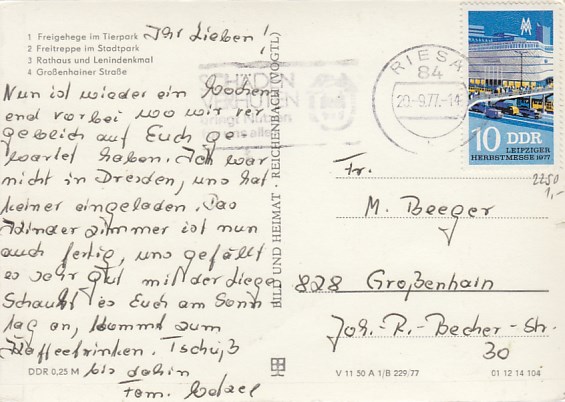 1 Freigehege im Tierpark
2 Freitreppe im Stadtpark
3 Rathaus und Lenindenkmal
4 Großenhainer Straße
Ihr Lieben!
Nun ist wieder ein Wochen
end vorbei wo wir ver
geblich auf Euch ge
wartet haben. Ich war
nicht in Dresden, uns hat
keiner eingeladen. Das
Kinderzimmer ist nun
auch fertig, uns gefällt
es sehr gut mit der Liege
Schaut es Euch am Sonn
tag an, kommt zum
Kaffeetrinken. Tschüß
bis dahin
Fam.
DDR 0,25 M
BILD UND HEIMAT · REICHENBACH (VOGTL)
SCHÄDEN
VERHÜTEN
bringt Nutzen
uns allen
RIESA
84
20.-9.77.-14
10 DDR
LEIPZIGER
HERBSTMESSE 1977
2250
1,-
Fr.
M. Beeger
828 Großenhain
Joh.-R.-Becher-Str.
30
V 11 50 A 1/B 229/77
01 12 14 104